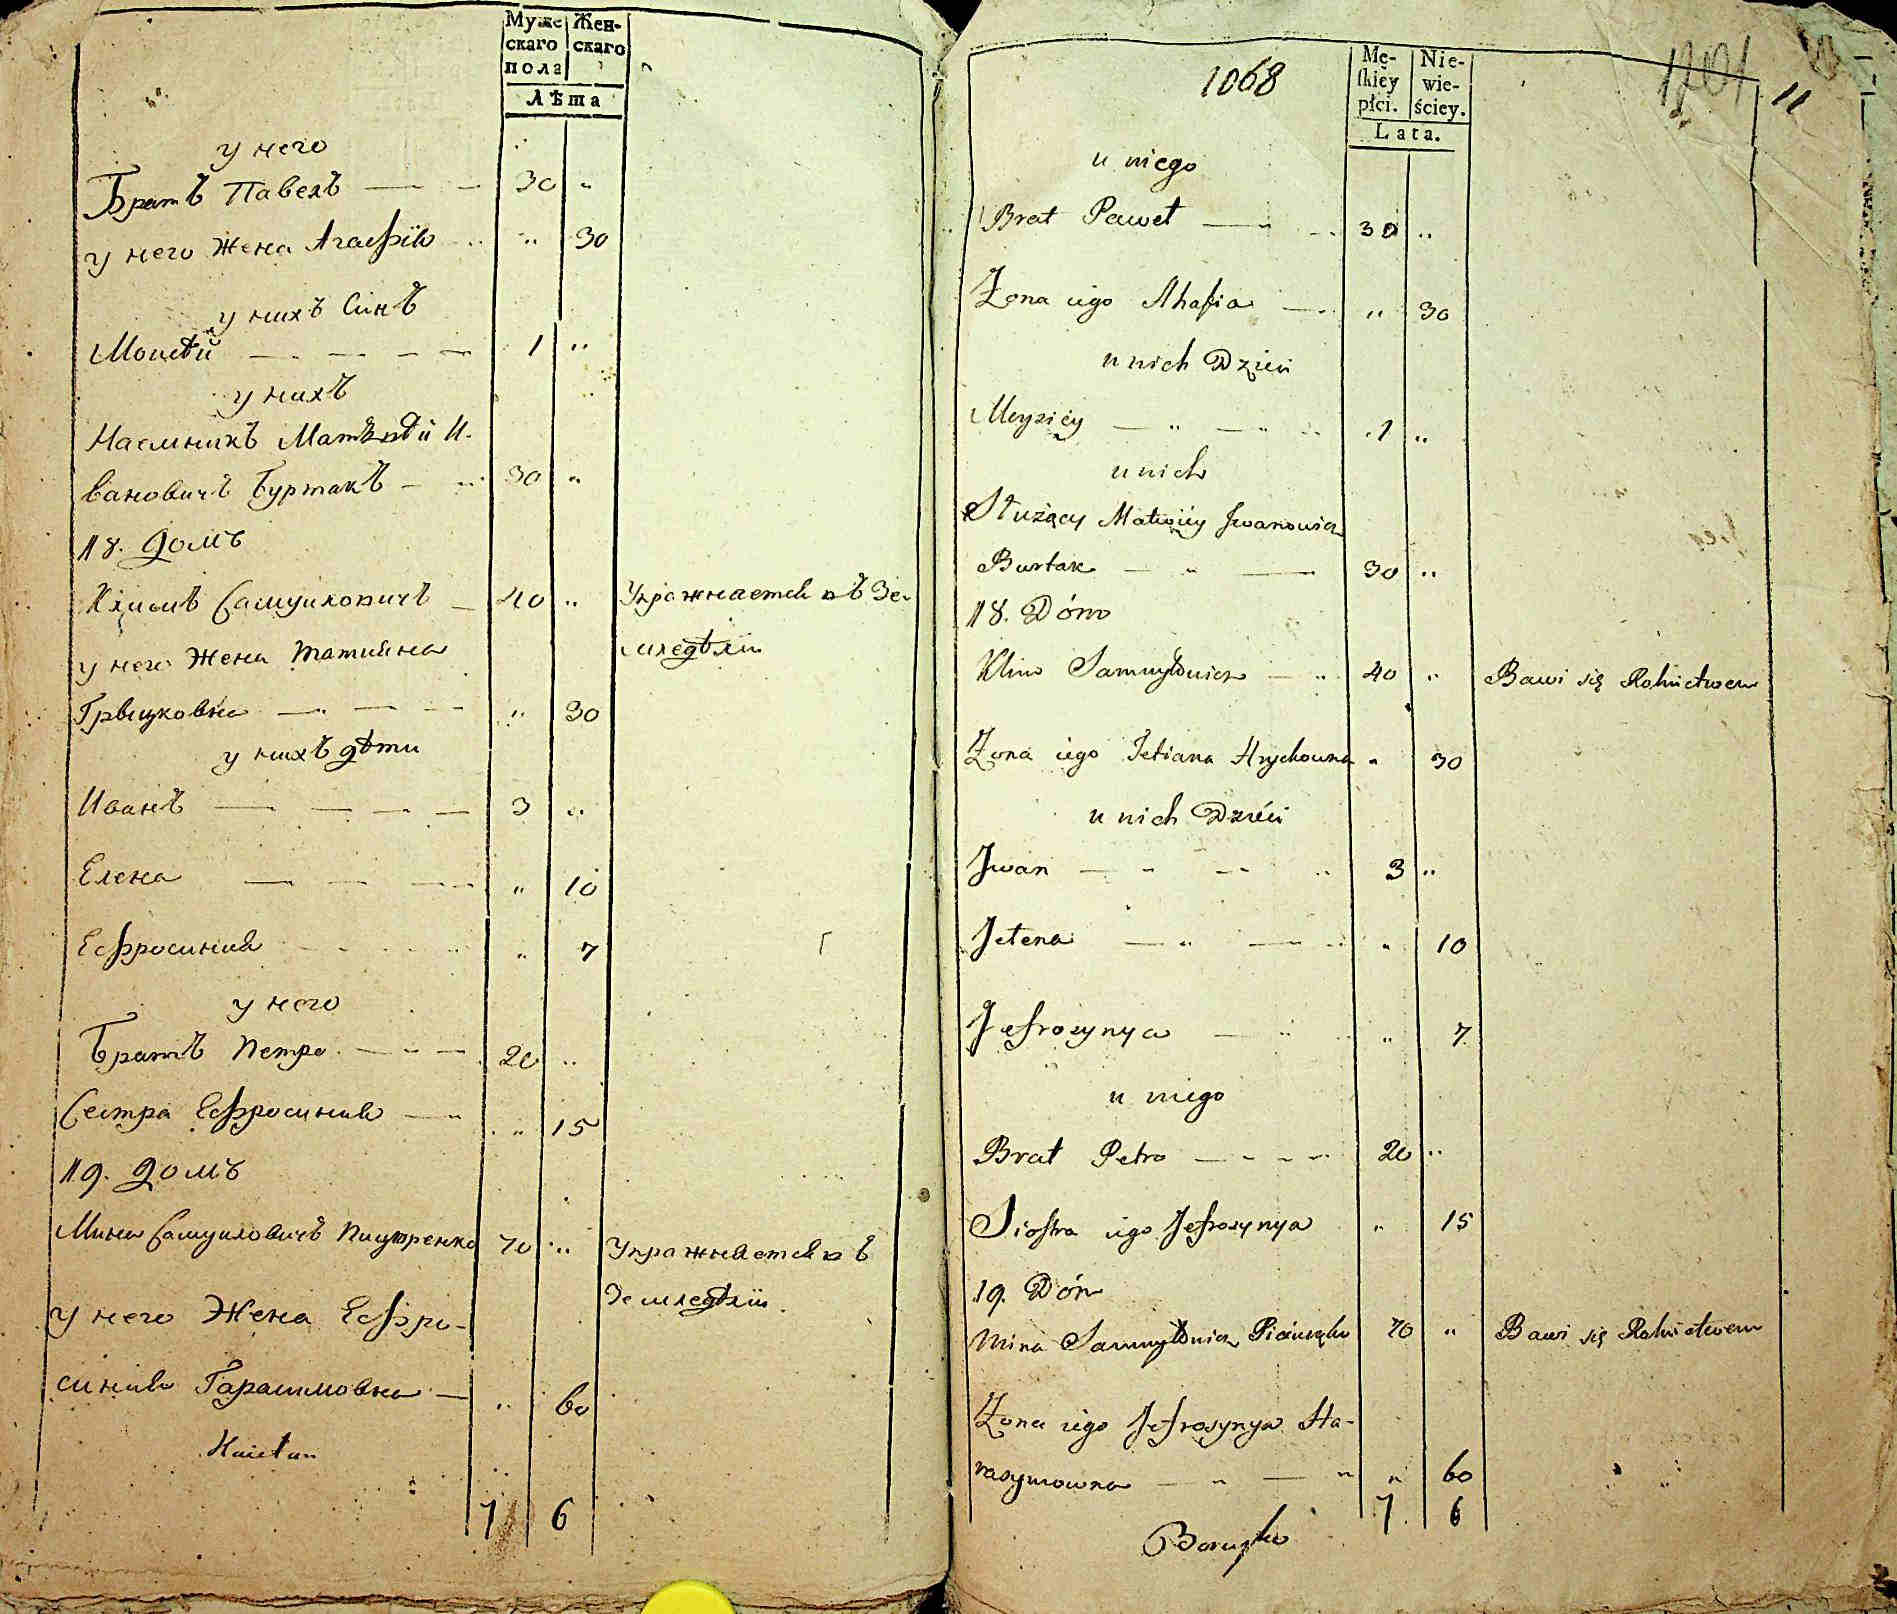 Муже Жен-
скаго скаго
пола
Лѣта
у него
Братъ Павелъ 30 "
у него Жена Агафія " 30
у нихъ Синъ
Моисѣй 1 "
у нихъ
Наемникъ Матвѣй И-
вановичъ Буртакъ 30 "
18. Домъ
Климъ Самуиловичъ 40 " Упражнается въ Зе-
мледѣліи
у него Жена Татиянна
Грыцковна " 30
у нихъ дѣти
Иванъ 3 "
Елена " 10
Ефросиния " 7
у него
Братъ Петро 20 "
Сестра Ефросиния " 15
19. Домъ
Мина Самуиловичъ 70 " Упражняется въ
Земледѣліи
у него Жена Ефро-
синия Гарасимовна " 60
7 6
1068
Mę- Nie-
skiey wie-
płci. ściey.
Lata.
11
u niego
Brat Paweł 30 "
Żona iego Ahafia " 30
u nich Dzieci
Moyziey 1 "
u nich
Służący Matwiiy Iwanowicz
Burtak 30 "
18. Dóm
Klim Samuyłowicz 40 " Bawi się Rolnictwem
Żona iego Tetiana Hrychowna " 30
u nich Dzieci
Iwan 3 "
Jełena " 10
Jefrosynya " 7
u niego
Brat Petro 20 "
Siostra iego Jefrosynya " 15
19. Dóm
Mina Samuyłowicz 70 " Bawi się Rolnictwem
Żona iego Jefrosynya Ha-
rasymowna " 60
7 6